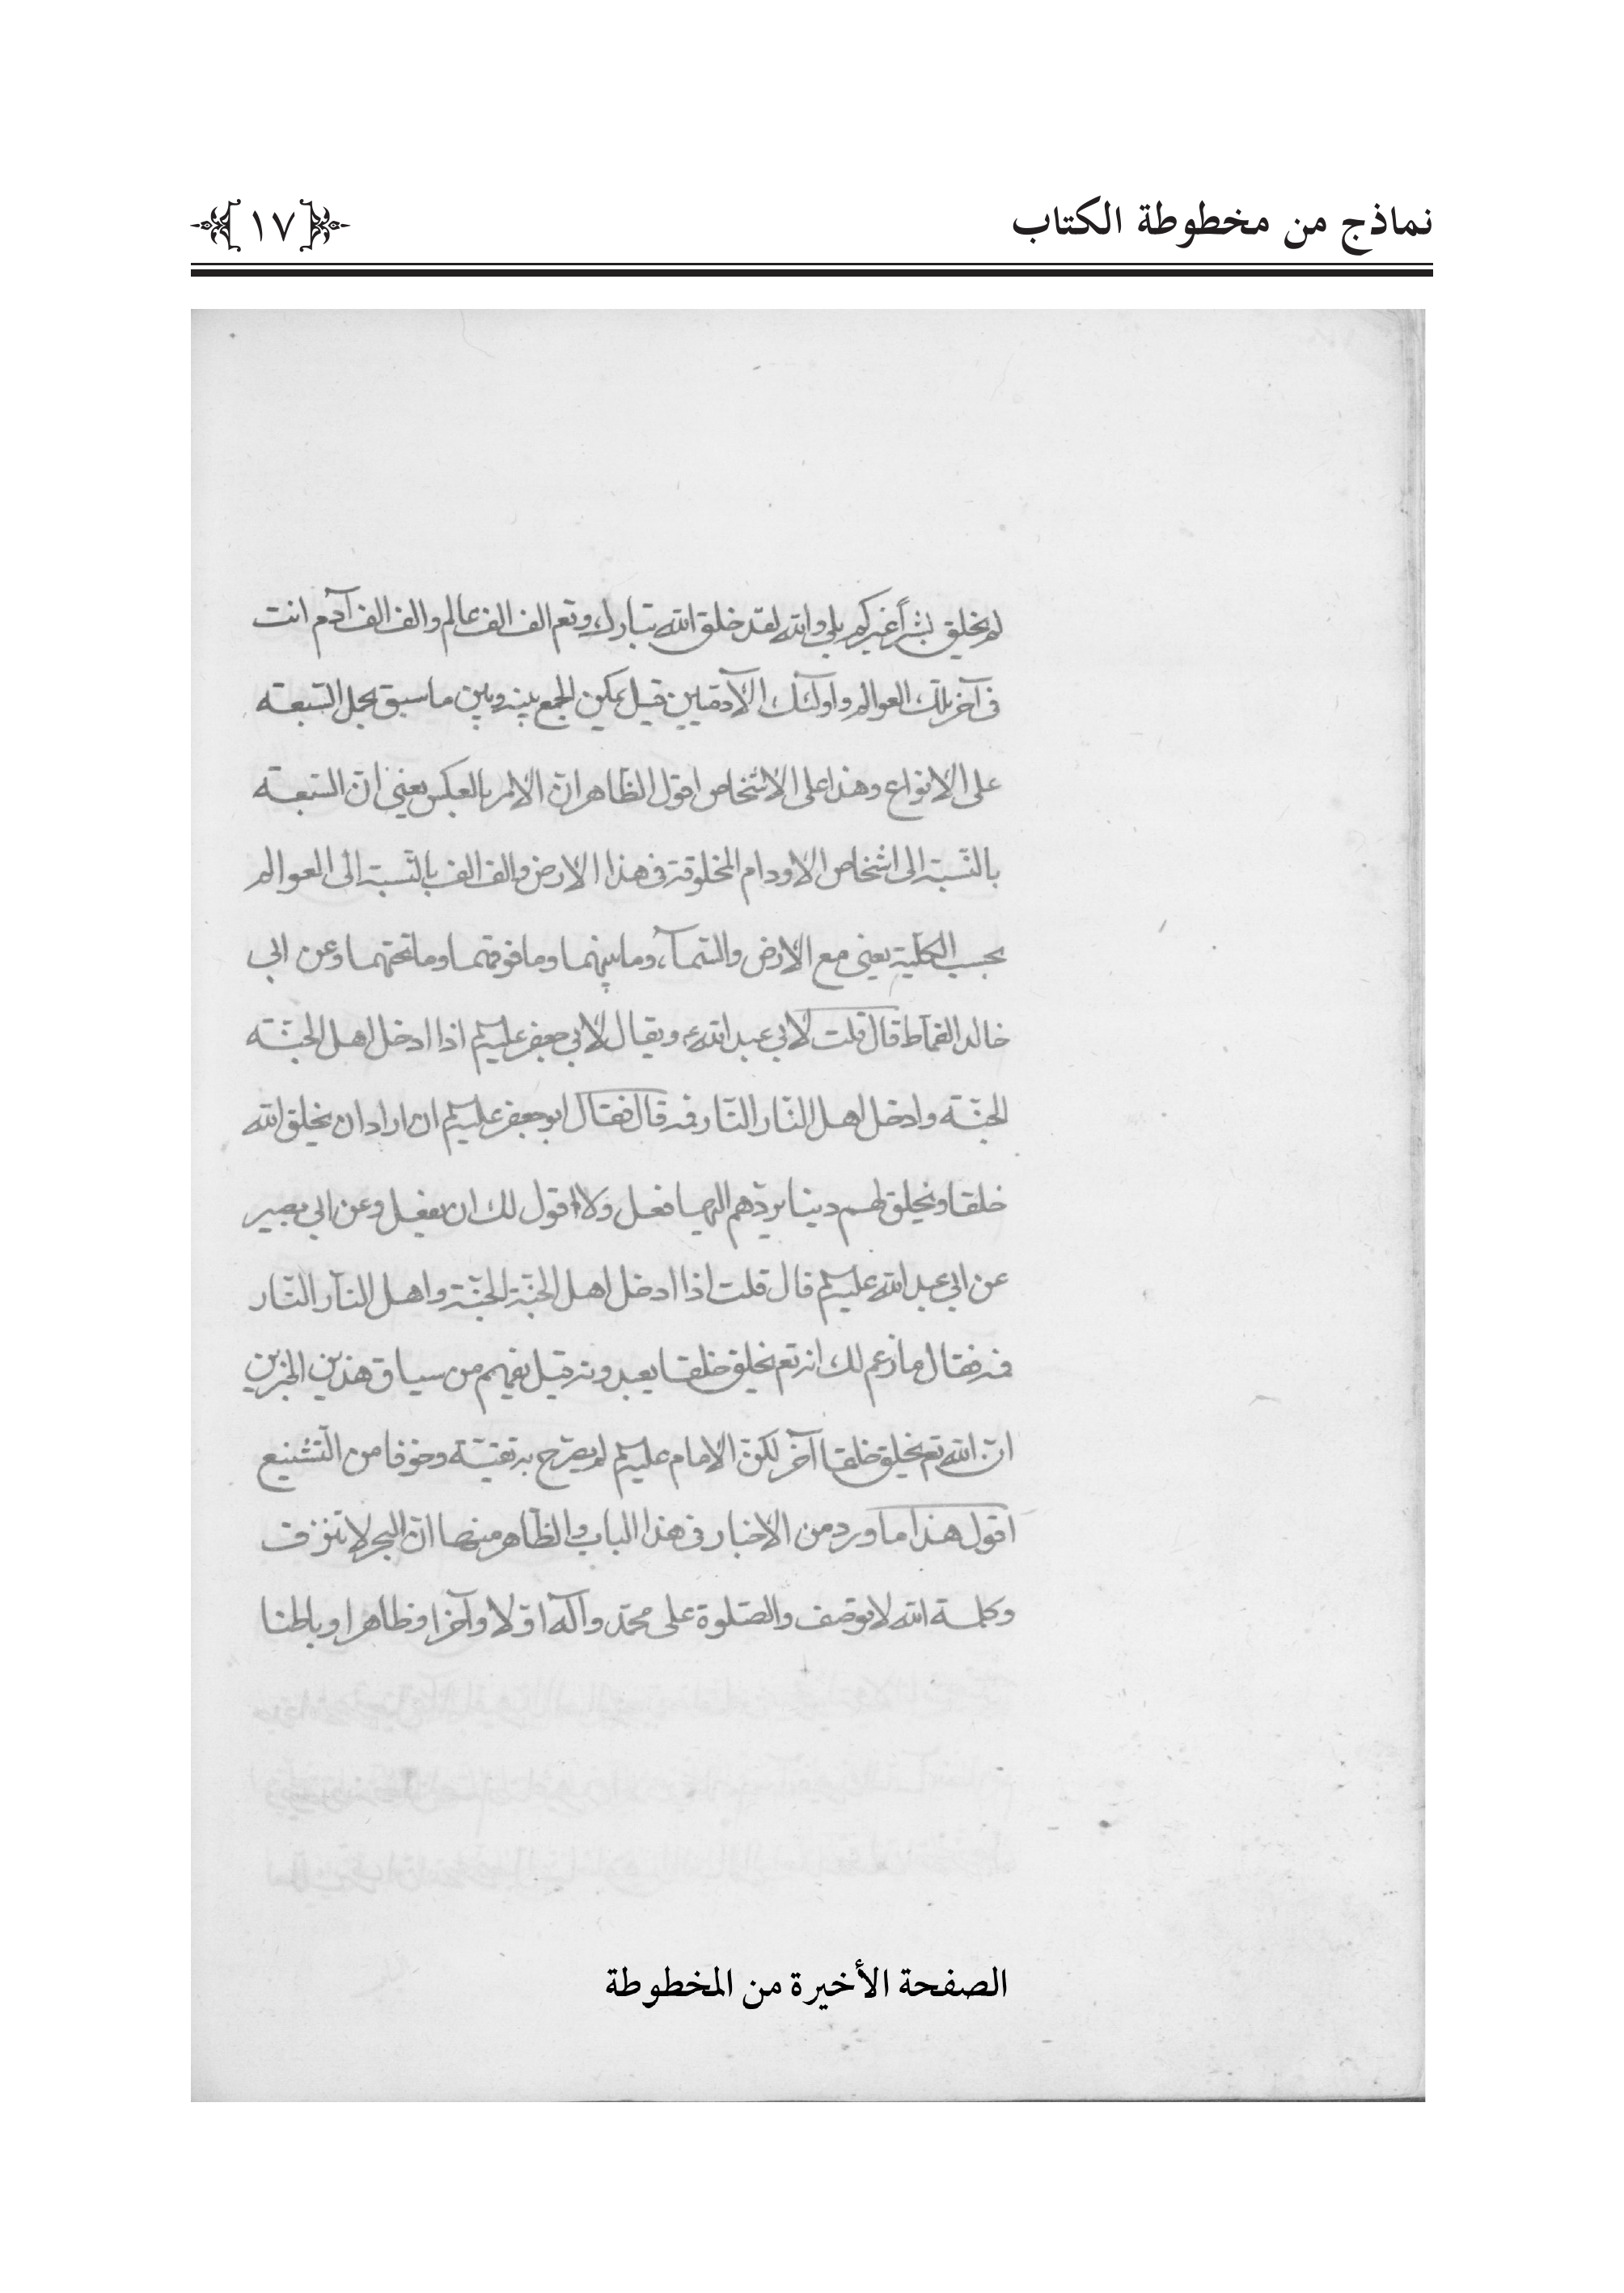 نماذج من مخطوطة الكتاب
١٧
لم يخلق بشراً غيركم بلى والله لقد خلق الله تبارك وتعم الف الف عالم والف الف آدم انت
فى آخر تلك العوالم واولئك الآدميين قيل يمكن الجمع بينه وبين ما سبق بحمل السبعة
على الانواع وهذا على الاشخاص اقول الظاهر ان الامر بالعكس يعنى ان السبعة
بالنسبة الى اشخاص الاودام المخلوقة فى هذا الارض والف الف بالنسبة الى العوالم
بحسب الكلية يعنى مع الارض والسمآء وما بينهما وما فوقهما وما تحتهما وعن ابى
خالد القماط قال قلت لابى عبد الله ع ويقال لابى جعفر عليه السلم اذا ادخل اهل الجنة
الجنة وادخل اهل النار النار فمه قال فقال ابو جعفر عليه السلم ان اراد ان يخلق الله
خلقا ويخلق لهم دينا يردهم اليها فعل ولا اقول لك ان يفعل وعن ابى بصير
عن ابى عبد الله عليه السلم قال قلت اذا ادخل اهل الجنة الجنة واهل النار النار
فمه فقال ما ازعم لك انه تعم يخلق خلقا يعبدونه قيل يفهم من سياق هذين الخبرين
ان الله تعم يخلق خلقا آخر لكن الامام عليه السلم لم يصرح به تقية وخوفا من التشنيع
اقول هذا ما ورد من الاخبار فى هذا الباب والظاهر منها ان البحر لا تنزف
وكلمة الله لا توصف والصلوة على محمد وآله اولا وآخرا وظاهرا وباطنا
الصفحة الأخيرة من المخطوطة